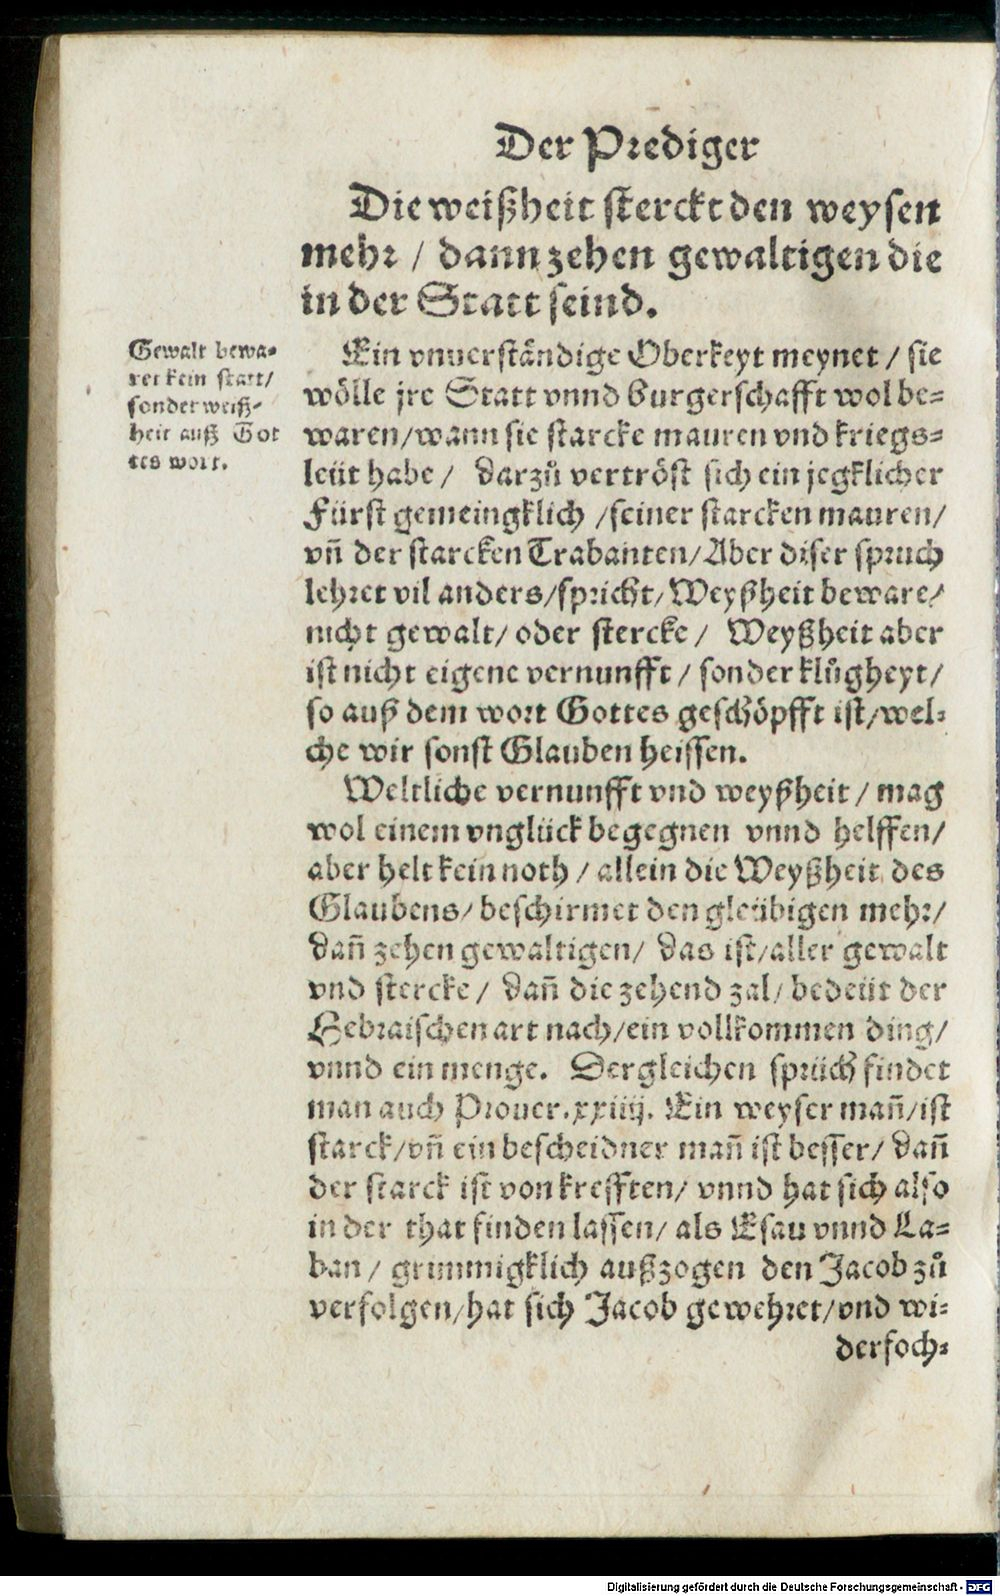 Der Prediger
Die weißheit sterckt den weysen
mehr / dann zehen gewaltigen die
in der Statt seind.
Gewalt bewa-
ret kein statt/
sonder weiß-
heit auß Got
tes wort.
Ein vnuerständige Oberkeyt meynet / sie
wölle jre Statt vnnd Burgerschafft wol be-
waren/wann sie starcke mauren vnd kriegs-
leüt habe / darzů vertröst sich ein jegklicher
Fürst gemeingklich /seiner starcken mauren/
vñ der starcken Trabanten/Aber diser spruch
lehret vil anders/spricht/Weyßheit beware/
nicht gewalt/ oder stercke / Weyßheit aber
ist nicht eigene vernunfft / sonder klůgheyt/
so auß dem wort Gottes geschöpfft ist/wel-
che wir sonst Glauben heissen.
Weltliche vernunfft vnd weyßheit / mag
wol einem vnglück begegnen vnnd helffen/
aber helt kein noth / allein die Weyßheit des
Glaubens/ beschirmet den gleübigen mehr/
dañ zehen gewaltigen/ das ist/aller gewalt
vnd stercke / dañ die zehend zal/ bedeüt der
Hebraischen art nach/ein vollkommen ding/
vnnd ein menge. Dergleichen sprüch findet
man auch Prouer.xxiiij. Ein weyser mañ/ist
starck/vñ ein bescheidner mañ ist besser/ dañ
der starck ist von krefften/ vnnd hat sich also
in der that finden lassen/ als Esau vnnd La-
ban / grimmigklich außzogen den Jacob zů
verfolgen/hat sich Jacob gewehret/vnd wi-
derfoch-
Digitalisierung gefördert durch die Deutsche Forschungsgemeinschaft - DFG